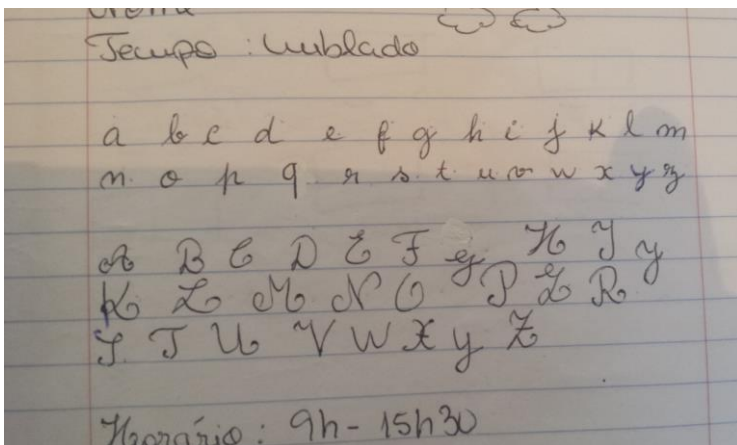 Tempo : Nublado
a b c d e f g h i j k l m
n o p q r s t u v w x y z
A B C D E F G H I J
K L M N O P Q R
S T U V W X Y Z
Horário : 9h - 15h30